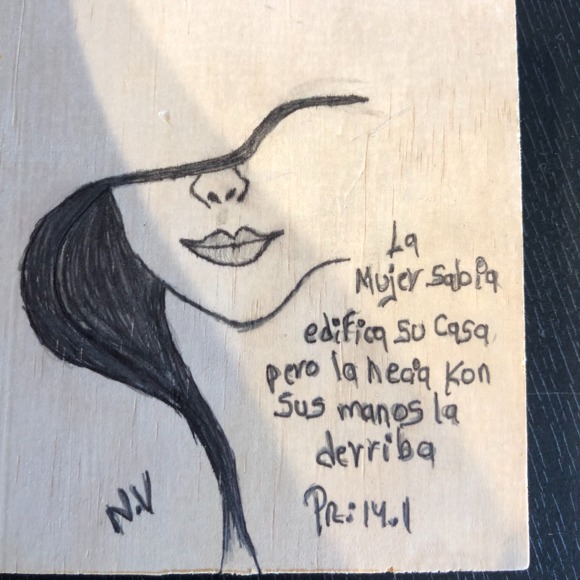 La
Mujer sabia
edifica su Casa
pero la necia kon
sus manos la
derriba
Pr:14.1
N.V